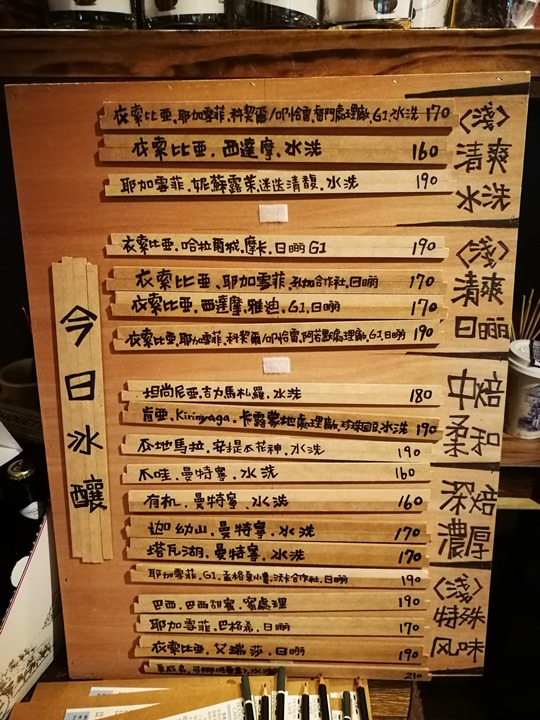 今日冰釀
衣索比亞.耶加雪菲.科契爾/叩恰雷.督門處理廠.G1.水洗 170
衣索比亞.西達摩.水洗 160
耶加雪菲.妮蘇露萊迷迭清馥.水洗 190
〈淺〉
清爽
水洗
衣索比亞.哈拉爾城.摩卡.日曬G1 190
衣索比亞.耶加雪菲.孔加合作社.日曬 170
衣索比亞.西達摩.雅迪.G1.日曬 170
衣索比亞.耶加雪菲.科契爾/叩恰雷.阿若默處理廠.G1.日曬 190
〈淺〉
清爽
日曬
坦尚尼亞.吉力馬札羅.水洗 180
肯亞.Kirinyaga.卡露蒙地處理廠.珍珠圓豆.水洗 190
瓜地馬拉.安提瓜花神.水洗 190
中焙
柔和
爪哇.曼特寧.水洗 160
有机.曼特寧.水洗 160
迦幼山.曼特寧.水洗 170
塔瓦湖.曼特寧.水洗 170
深焙
濃厚
耶加雪菲.G1.孟格莫小農.沃卡合作社.日曬 190
巴西.巴西甜蜜.蜜處理 190
耶加雪菲.巴格希.日曬 170
衣索比亞.艾瑞莎.日曬 190
210
〈淺〉
特殊
风味